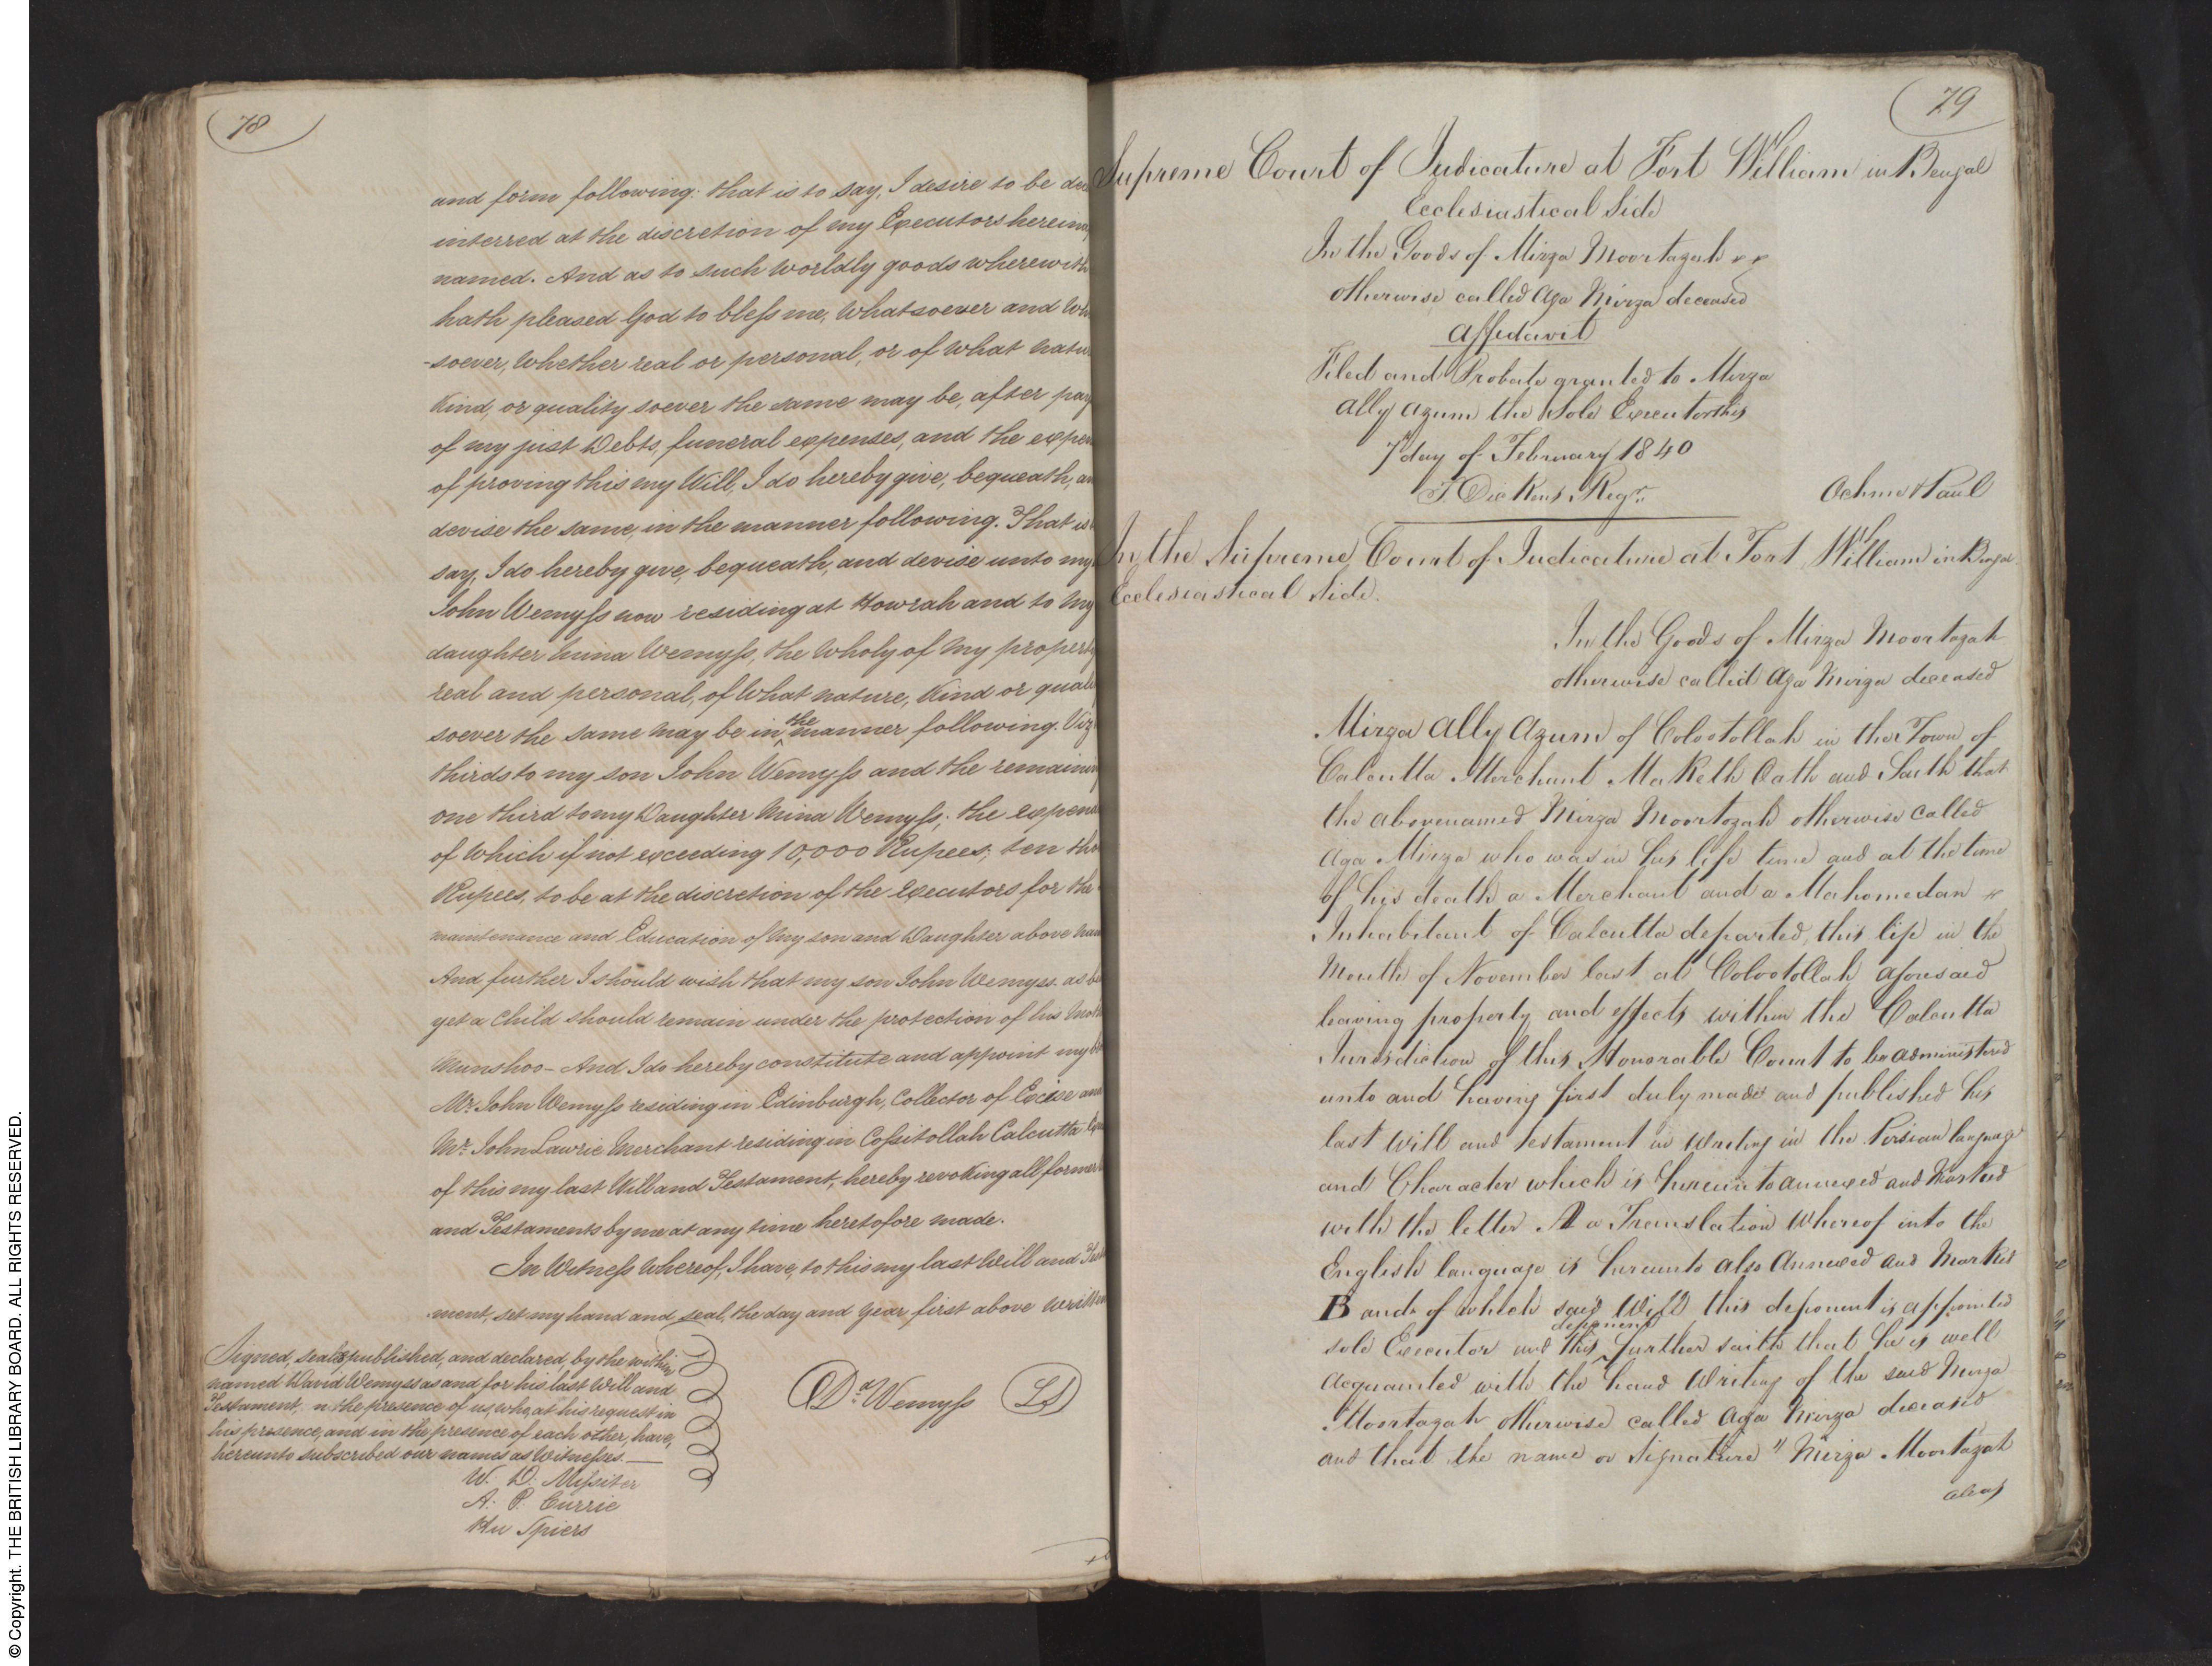 78
and form following: that is to say, I desire to be
interred at the discretion of my Executors
named. And as to such worldly goods
hath pleased God to bless me, whatsoever and
-soever, whether real or personal, or of what
kind, or quality soever the same may be, after
of my just Debts, funeral expenses, and the
of proving this my Will, I do hereby give, bequeath,
devise the same, in the manner following. That is
say, I do hereby give, bequeath, and devise unto my
John Wemyss now residing at Howrah and to my
daughter Mina Wemyss, the wholy of my property
real and personal, of what nature, kind or
soever the same may be in the manner following. Viz
thirds to my son John Wemyss and the
one third to my Daughter Mina Wemyss; the
of which if not exceeding 10,000 Rupees, ten
Rupees, to be at the discretion of the Executors for the
maintenance and Education of my son and Daughter above
And further I should wish that my son John Wemyss. as
yet a Child should remain under the protection of his
Munshoo - And I do hereby constitute and appoint my
Mr. John Wemyss residing in Edinburgh, Collector of Excise
Mr. John Lawrie Merchant residing in Cossitollah Calcutta
of this my last Will and Testament, hereby revoking all former
and Testaments by me at any time heretofore made.
In Witness whereof, I have, to this my last Will and
ment, set my hand and seal, the day and year first above written
Signed, sealed published, and declared, by the within
named David Wemyss as and for his last Will and
Testament, n the presence of us, who, at his request in
his presence, and in the presence of each other, have,
hereunto subscribed our names as Witnesses.
Dd. Wemyss LS
W. D. Messiter
A. P. Currie
Hu Spiers
79
Supreme Court of Judicature at Fort William in Bengal
Ecclesiastical Side
In the Goods of Mirza Moortazah
otherwise called Aga Mirza deceased
Affedavit
Filed and Probate granted to Mirza
Ally Azum the Sole Executor this
7 day of February 1840
T. Dickens Regr.
Ochme Paul
In the Supreme Court of Judicature at Fort William in Bengal
Ecclesiastical Side.
In the Goods of Mirza Moortazah
otherwise called Aga Mirza deceased
Mirza Ally Azum of Colootollah in the Town of
Calcutta Merchant Maketh Oath and Saith that
the abovenamed Mirza Moortozah otherwise called
Aga Mirza who was in his life time and at the time
of his death a Merchant and a Mahomedan "
Inhabitant of Calcutta departed this life in the
Month of November last at Colootollah aforesaid
leaving property and effects within the Calcutta
Jurisdiction of this Honorable Court to be administered
unto and having first duly made and published his
last Will and Testament in Writing in the Persian language
and Character which is hereunto annexed and Marked
with the letter A a Translation Whereof into the
English language is hereunto also Annexed and Marked
B and of which said Will this deponent is appointed
sole Executor and this deponent further saith that he is well
acquainted with the hand Writing of the said Mirza
Moortazah otherwise called Aga Mirza deceased
and that the name or Signature " Mirza Moortazah
alias
© Copyright. THE BRITISH LIBRARY BOARD. ALL RIGHTS RESERVED.